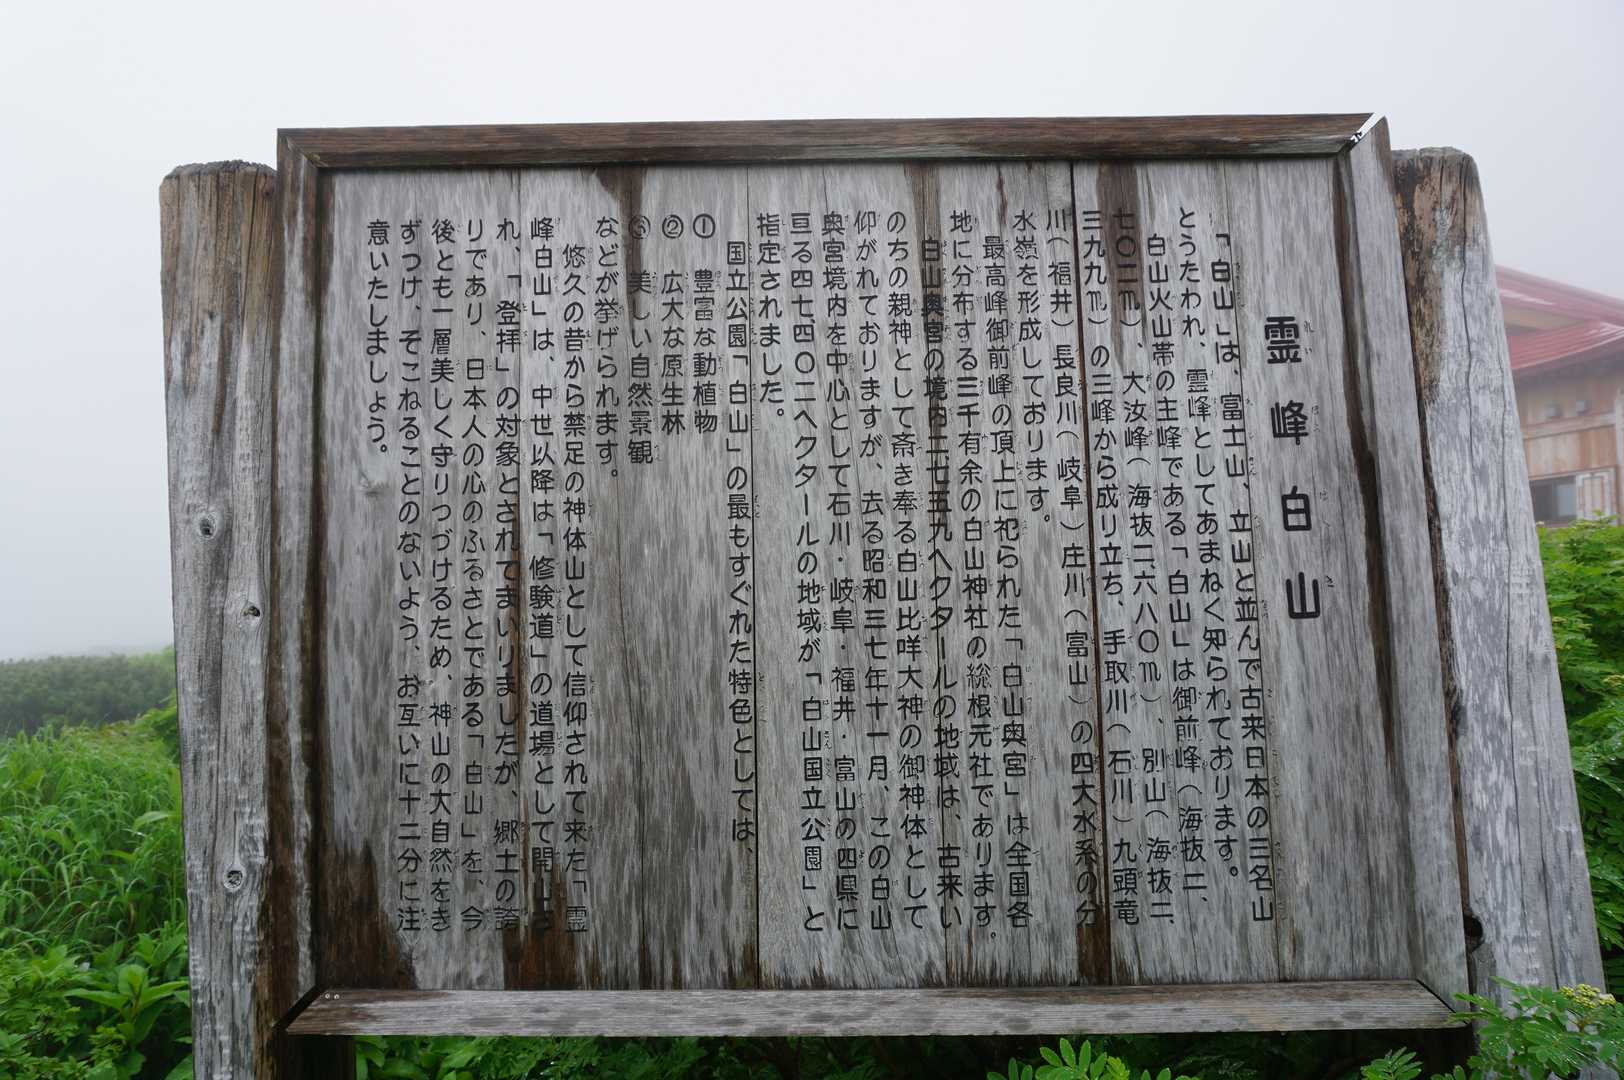 霊峰白山
「白山」は、富士山、立山と並んで古来日本の三名山
とうたわれ、霊峰としてあまねく知られております。
白山火山帯の主峰である「白山」は御前峰(海抜二、
七〇二m)、大汝峰(海抜二、六八〇m)、別山(海抜二、
三九九m)の三峰から成り立ち、手取川(石川)九頭竜
川(福井)長良川(岐阜)庄川(富山)の四大水系の分
水嶺を形成しております。
最高峰御前峰の頂上に祀られた「白山奥宮」は全国各
地に分布する三千有余の白山神社の総根元社であります。
白山奥宮の境内二七五九ヘクタールの地域は、古来い
のちの親神として斎き奉る白山比咩大神の御神体として
仰がれておりますが、去る昭和三七年十一月、この白山
奥宮境内を中心として石川・岐阜・福井・富山の四県に
亘る四七、四〇二ヘクタールの地域が「白山国立公園」と
指定されました。
国立公園「白山」の最もすぐれた特色としては、
① 豊富な動植物
② 広大な原生林
③ 美しい自然景観
などが挙げられます。
悠久の昔から禁足の神体山として信仰されて来た「霊
峰白山」は、中世以降は「修験道」の道場として開山さ
れ、「登拝」の対象とされてまいりましたが、郷土の誇
りであり、日本人の心のふるさとである「白山」を、今
後とも一層美しく守りつづけるため、神山の大自然をき
ずつけ、そこねることのないよう、お互いに十二分に注
意いたしましょう。